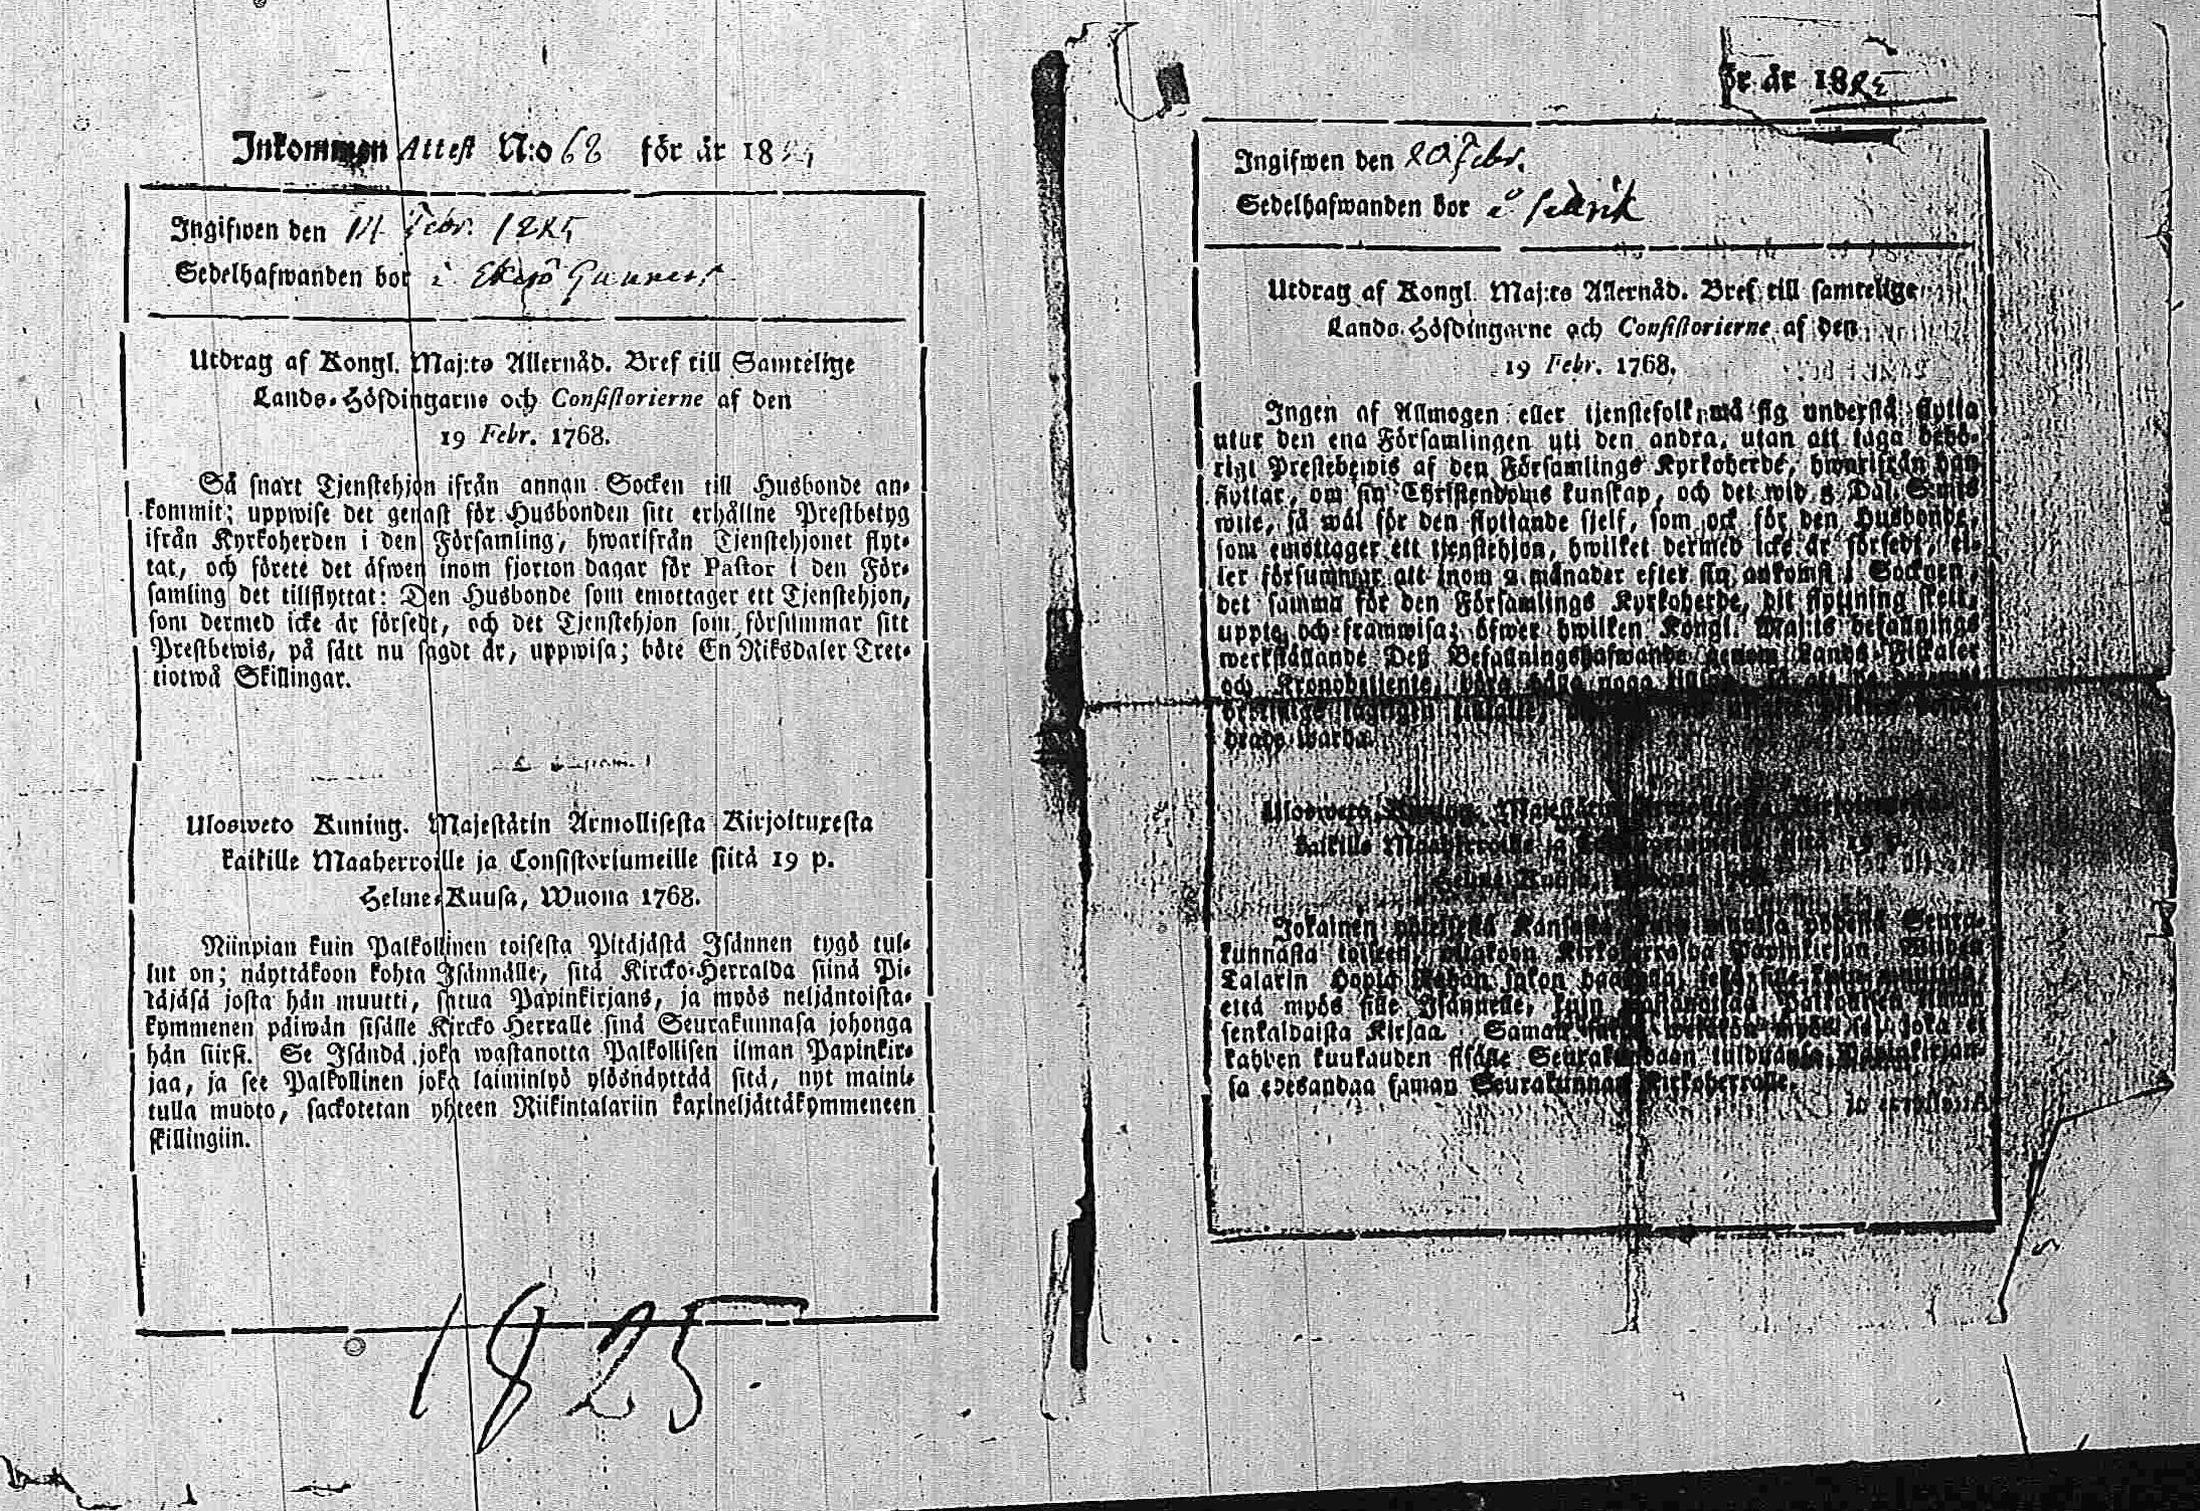 Inkommen Attest N:o 68 för år 18
Ingifwen den Febr. 1825
Sedelhafwanden bor i
Utdrag af Kongl. Maj:ts Allernåd. Bref till Samtelige
Lands-Höfdingarne och Consistorierne af den
19 Febr. 1768.
Så snart Tjenstehjon ifrån annan Socken till Husbonde an-
kommit; uppwise det genast för Husbonden sitt erhållne Prestbetyg
ifrån Kyrkoherden i den Församling, hwarifrån Tjenstehjonet flyt-
tat, och förete det äfwen inom fjorton dagar för Pastor i den För-
samling det tillflyttat: Den Husbonde som emottager ett Tjenstehjon,
som dermed icke är försedt, och det Tjenstehjon som försummar sitt
Prestbewis, på sätt nu sagdt är, uppwisa; böte En Riksdaler Tret-
tiotwå Skillingar.
Ulosweto Kuning. Majestätin Armollisesta Kirjoituxesta
kaikille Maaherroille ja Consistoriumeille siitä 19 p.
Helme-Kuusa, Wuona 1768.
Niinpian kuin Palkollinen toisesta Pitäjästä Isännen tygö tul-
lut on; näyttäkoon kohta Isännälle, sitä Kircko-Herralda siinä Pi-
täjäsä josta hän muutti, saatua Papinkirjans, ja myös neljäntoista-
kymmenen päiwän sisälle Kircko Herralle sinä Seurakunnasa johonga
hän siirsi. Se Isändä joka wastanotta Palkollisen ilman Papinkir-
jaa, ja see Palkollinen joka laiminlyö ylösnäyttää sitä, nyt maini-
tulla muoto, sackotetan yhteen Riikintalariin kaxineljättäkymmeneen
skillingiin.
1825
ör år 1825
Ingifwen den 20 Febr.
Sedelhafwanden bor i
Utdrag af Kongl. Maj:ts Allernåd. Bref till samtelige
Lands-Höfdingarne och Consistorierne af den
19 Febr. 1768.
Ingen af Allmogen eller tjenstefolk må sig understå flytta
utur den ena Församlingen uti den andra, utan att taga behö-
rigt Prestebewis af den Församlings Kyrkoherde, hwarifrån han
flyttar, om sin Christendoms kunskap, och det wid 2 Dal. S:mts
wite, så wäl för den flyttande sjelf, som ock för den Husbonde,
som emottager ett tjenstehjon, hwilket dermed icke är försedt, el-
ler försummar att inom 2 månader efter sin ankomst i Socknen,
det samma för den Församlings Kyrkoherde, dit flyttning skett,
uppte och framwisa; öfwer hwilken Kongl. Maj:ts befallnings
werkställande Deß Befallningshafwande genom Lands-Fiskaler
och Kronobetjente, böra hafwa noga
warda.
Ulosweto Kuning. Majestätin Armollisesta Kirjoituxesta
kaikille Maaherroille ja Consistoriumeille siitä 19 p.
Helme Kuusa, Wuona 1768.
Jokainen yhteisestä Kansasta, kuin muutta yhdestä Seura-
kunnasta toiseen, ottakoon Kirkoherralda Papinkirjan
Talarin Hopia Rahan sakon haastolla, sekä sille kuin muutta,
että myös sille Isännelle, kuin wastanottaa Palkollisen ilman
senkaldaista Kirjaa. Saman sakon myös se, joka ei
kahden kuukauden sisälle Seurakundaan tulduansa Papinkirjan-
sa edesandaa saman Seurakunnan Kirkoherralle.